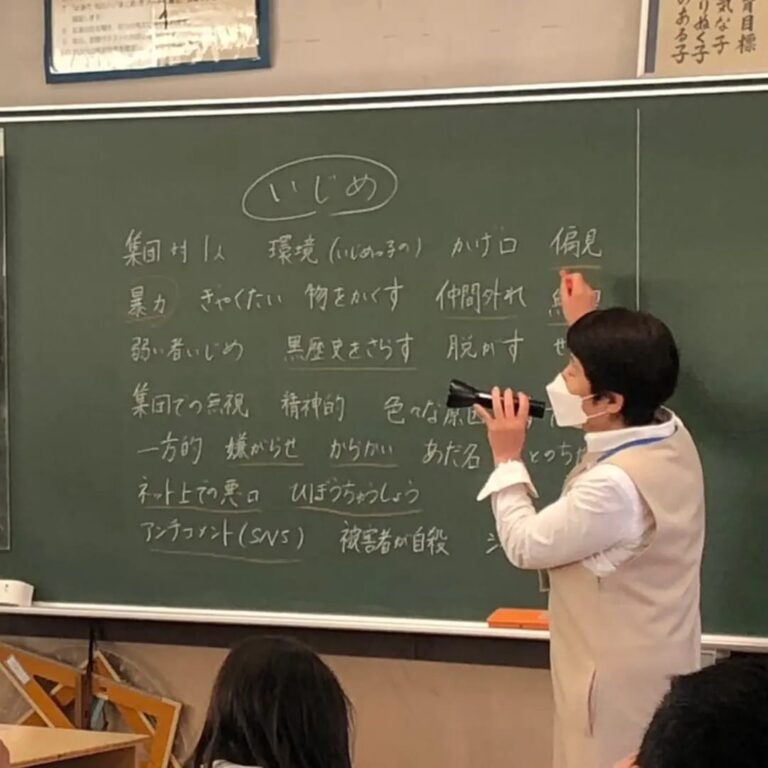 育目標
気な子
りぬく子
のある子
いじめ
集団対1人 環境(いじめっ子の) かげ口 偏見
暴力 ぎゃくたい 物をかくす 仲間外れ
弱い者いじめ 黒歴史をさらす 脱がす せ
集団での無視 精神的 色々な原因
一方的 嫌がらせ からかい あだ名 とのち
ネット上での悪口 ひぼうちゅうしょう
アンチコメント(SNS) 被害者が自殺 シ